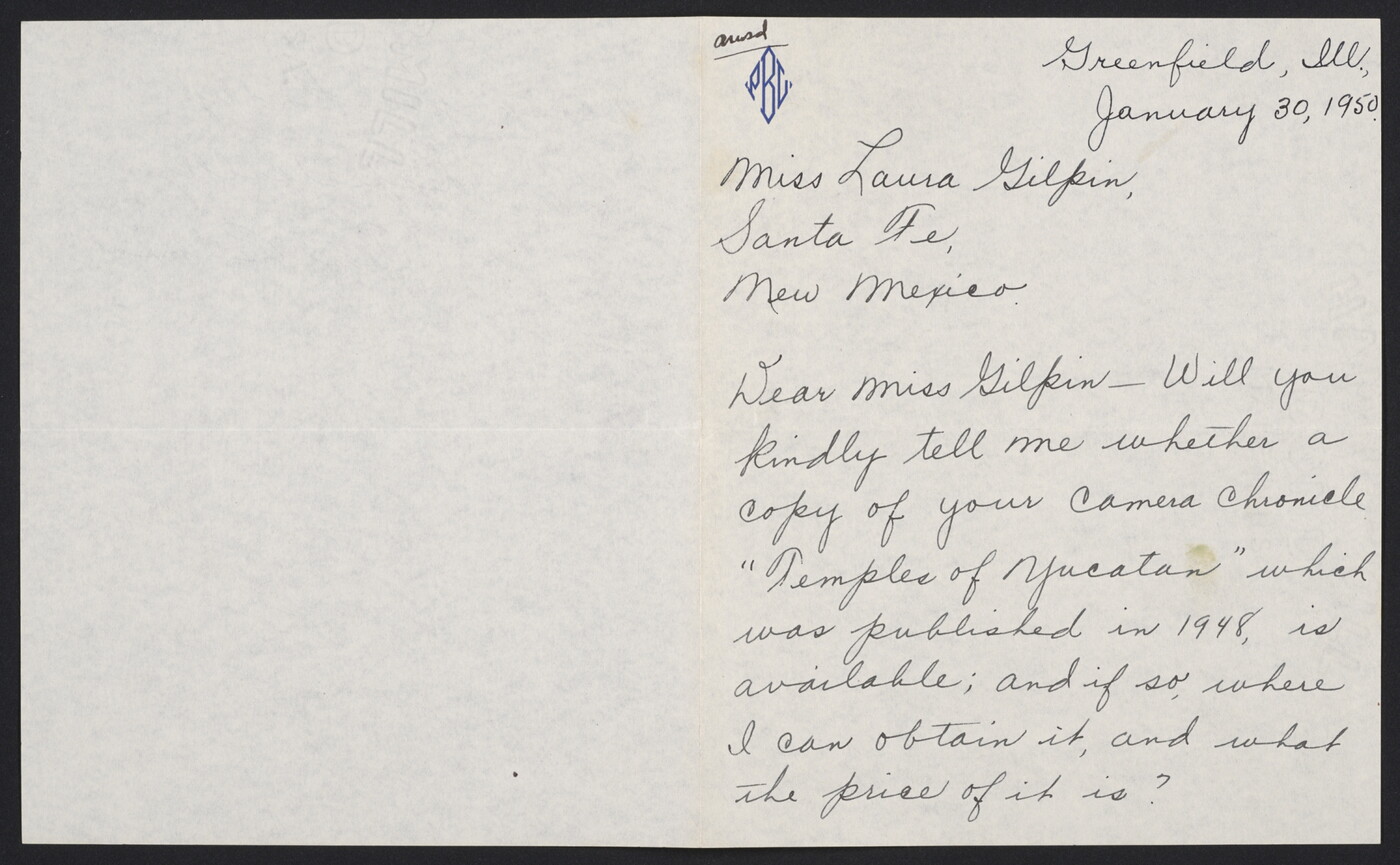 answd
PBC
Greenfield, Ill.,
January 30, 1950.
Miss Laura Gilpin,
Santa Fe,
New Mexico.
Dear Miss Gilpin — Will you
kindly tell me whether a
copy of your Camera Chronicle
"Temples of Yucatan" which
was published in 1948, is
available; and if so, where
I can obtain it, and what
the price of it is?